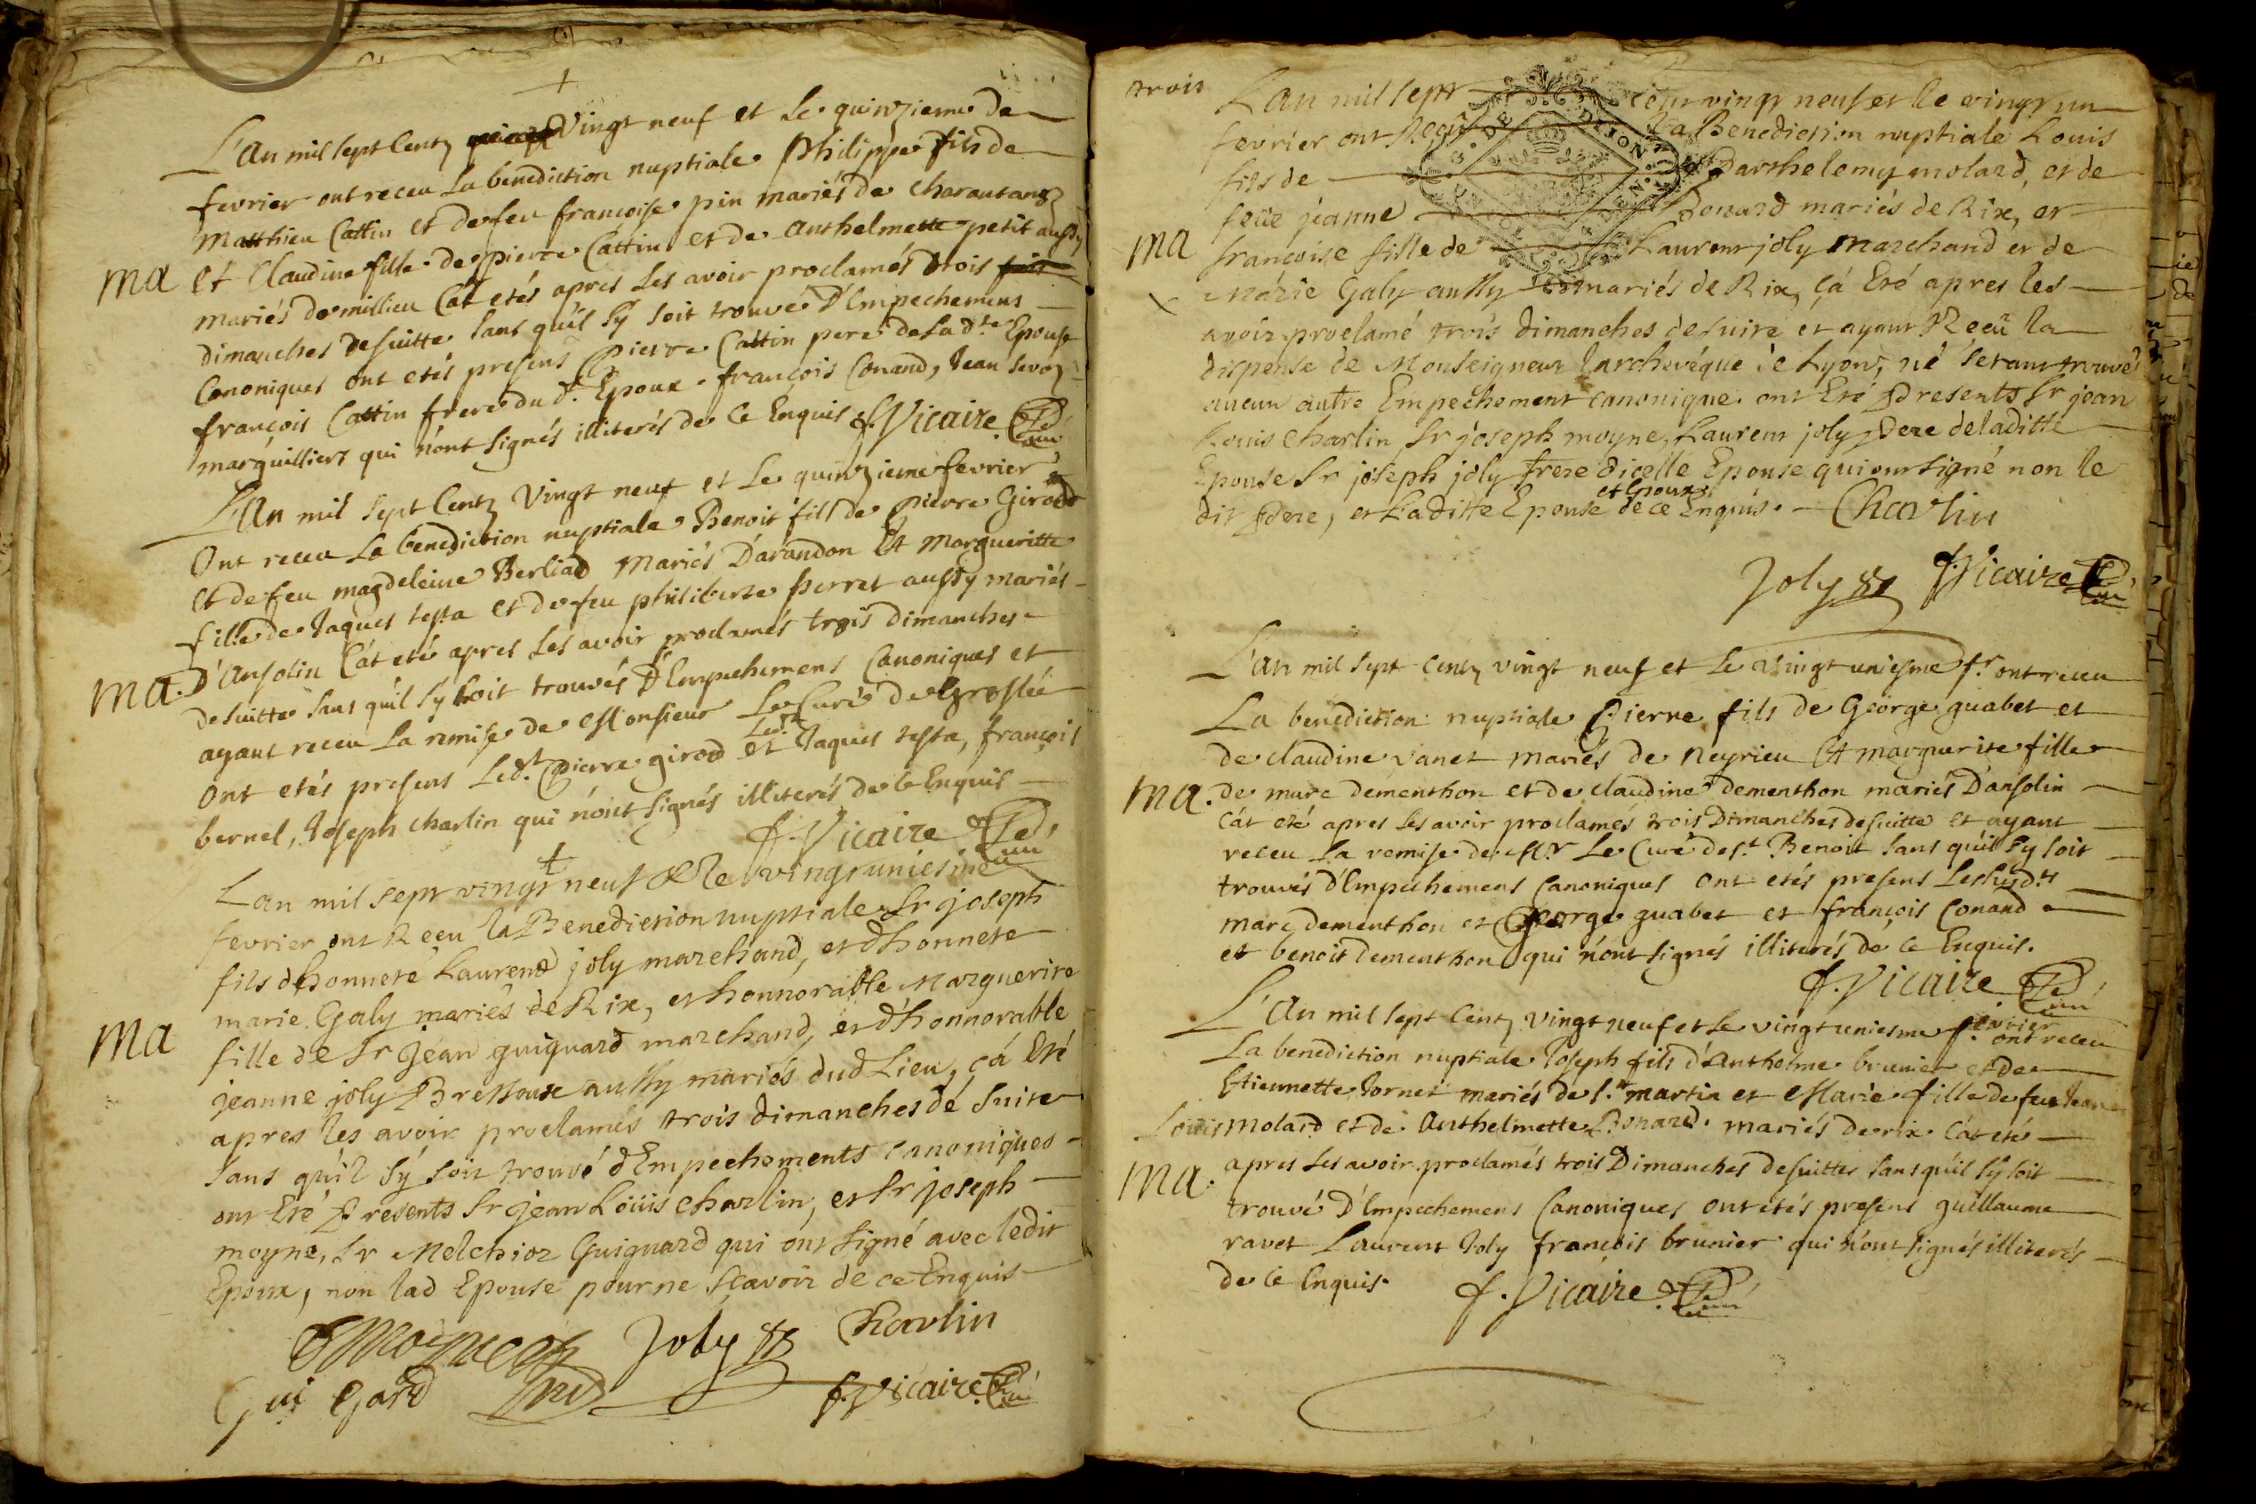 L'An mil sept Centz Vingt neuf et le quinzieme de
fevrier ont receu La benediction nuptiale Philippe fils de
Matthieu Cattin et de feu francoise pin mariés de charautang
et Claudine fille de pierre Cattin et de Anthelmette petit aussy
ma
mariés de millieu Cát etés apres les avoir proclamés trois
dimanches desuitte sans qu'il sy soit trouvé D'Empechemens
Cononiques ont etés presens Pierre Cattin pere de La dte Epouse
françois Cattin frere du dt Epoux françois Conand, Jean
marguilliers qui n'ont signés illiterés de Ce Enquis f. Vicaire
L'An mil sept Centz Vingt neuf et Le quinzieme fevrier
Ont receu La benediction nuptiale Benoit fils de pierre Girod
Et de feu magdeleine Berliad Mariés D'arandon Et Margueritte
fille de Jaques testa et de feu philiberte perret aussy mariés
ma. D'Ansolin Cát eté apres les avoir proclamés trois dimanches
desuitte sans qu'il sy soit trouvés D'Empechemens Canoniques et
ayant receu La remise de Monsieur Le Curé de Groslée
Ont etés presens Ledt Pierre girod et Ledt Jaques testa, françois
bernel, Joseph charlin qui n'ont signés illiterés de Ce Enquis
f. Vicaire
Lan mil sept vingt neuf & le vingtuniesme
fevrier ont Reçu la Benediction nuptiale Sr joseph
fils d'honneté Laurend joly marchand, et d'honnete
marie Galy mariés de Rix, et honnorable Marguerite
ma
fille de Sr Jean guiguard marchand, et d'honnorable
jeanne joly Bressoux aussy mariés dud Lieu, çá Eté
apres les avoir proclamés trois dimanches de suite
sans qu'il sy soit trouvé d'Empechements canoniques
ont Eté Presents Sr Jean Loüis charlin, et Sr joseph
moyne, Sr Melchior Guiguard qui ont signé avec ledit
Epoux, non lad Epouse pour ne sçavoir de ce Enquis
Moyne Joly Charlin
Gui Gard f. Vicaire
trois
Lan mil sept Cent vingt neuf et le vingt un
fevrier ont Reçü la Benediction nuptiale Louis
fils de Barthelemy molard, et de
feüe jeanne Bonard mariés de Rix, et
ma
françoise fille de Laurent joly marchand et de
Marie Galy aussy mariés de Rix, çá Eté apres les
avoir proclamé trois dimanches de suite et ayant Reçü la
dispense de Monseigneur Larchevêque de Lyon, né setant trouvé
aucun autre Empechement canonique ont Eté Presents Sr jean
Louis charlin Sr joseph moyne, Laurent joly Pere deladitte
Epouse Sr joseph joly frere dicelle Epouse qui ont signé non le
dit Pere, et Laditte Epouse et Epoux de ce Enquis. Charlin
Joly f. Vicaire
DE DIJON
L'an mil sept centz vingt neuf et Le vingtuniesme fr. ont receu
La benediction nuptiale Pierre fils de George guabet et
de claudine vanet mariés de Neyrieu Et marguerite fille
ma. de marc dementhon et de claudine dementhon mariés D'ansolin
Cát eté apres les avoir proclamés trois Dimanches desuitte et ayant
receu La remise de Mr Le Curé de st Benoit sans qu'il sy soit
trouvés d'Empechemens Canoniques Ont etés presens Les susdts
marc dementhon et George guabet et françois Conand
et benoit dementhon qui n'ont signés illiterés de Ce Enquis.
f. Vicaire
L'An mil sept Centz Vingt neuf et Le vingtuniesme fevrier ont receu
La benediction nuptiale Joseph fils d'Anthelme brunier et de
Etiennette Jornet mariés de st martin et Marie fille de feu Jean
Louis molard et de Anthelmette Bonard mariés de rix Cát eté
apres les avoir proclamés trois Dimanches desuittes sans qu'il sy soit
ma.
trouvé D'Empechemens Canoniques ont etés presens guillaume
ravet Laurent Joly francois brunier qui n'ont signés illiterés
de Ce Enquis. f. Vicaire